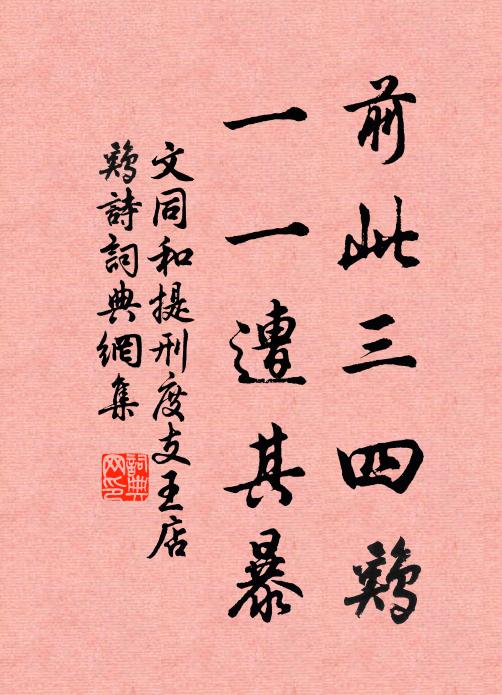 前此三四鷄
一一遭其暴
文同和提刑度支王店
鷄詩詞典網集
詞典網印